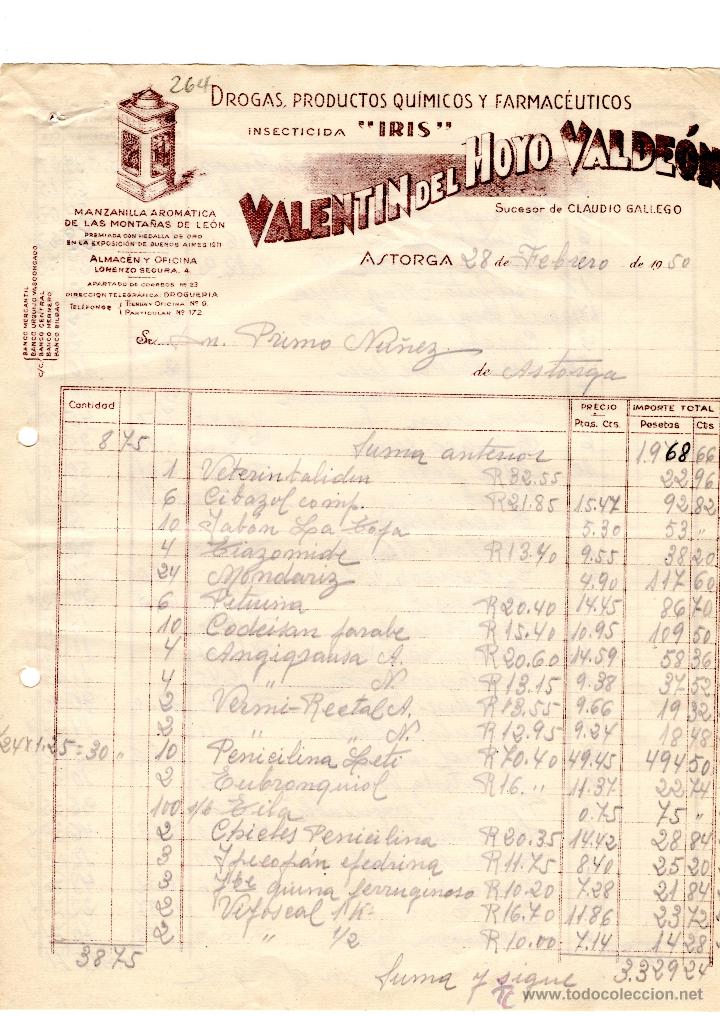 264
DROGAS, PRODUCTOS QUÍMICOS Y FARMACÉUTICOS
INSECTICIDA "IRIS"
VALENTIN DEL HOYO VALDEÓN
Sucesor de CLAUDIO GALLEGO
MANZANILLA AROMÁTICA
DE LAS MONTAÑAS DE LEÓN
PREMIADA CON MEDALLA DE ORO
EN LA EXPOSICIÓN DE BUENOS AIRES 1911
ALMACÉN Y OFICINA
LORENZO SEGURA, 4
APARTADO DE CORREOS Nº 23
DIRECCIÓN TELEGRÁFICA: DROGUERIA
TELÉFONOS TIENDA Y OFICINA Nº 9
PARTICULAR Nº 172
C/C. BANCO MERCANTIL
BANCO URQUIJO VASCONGADO
BANCO CENTRAL
BANCO HERRERO
BANCO BILBAO
ASTORGA 28 de Febrero de 1950
Sr. Dn. Primo Núñez
de Astorga
Cantidad PRECIO IMPORTE TOTAL
Ptas. Cts. Pesetas Cts
8 75 Suma anterior 1.968 66
1 R 32.55 22 96
6 Cibazol comp. R 21.85 15.47 92 82
10 Jabón La Toja 5.30 53 "
4 R 13.40 9.55 38 20
24 Mondariz 4.90 117 60
6 R 20.40 14.45 86 70
10 Codeisan jarabe R 15.40 10.95 109 50
4 Angigrausa A. R 20.60 14.59 58 36
4 " N. R 13.15 9.38 37 52
2 Vermi-Rectal A. R 13.55 9.66 19 32
2 " " N. R 12.95 9.24 18 48
24 x 1.25 = 30 " 10 Penicilina Leti R 70.40 49.45 494 50
2 Eubronquiol R 16. " 11.37 22 74
100 Tila 0.75 75 "
2 Chicles Penicilina R 20.35 14.42 28 84
3 Ipecopán efedrina R 11.75 8.40 25 20
3 Jbe quina ferruginoso R 10.20 7.28 21 84
2 Vifoscal 1 K R 16.70 11.86 23 72
2 " 1/2 R 10.00 7.14 14 28
38 75 Suma y sigue 3.329 24
www.todocoleccion.net